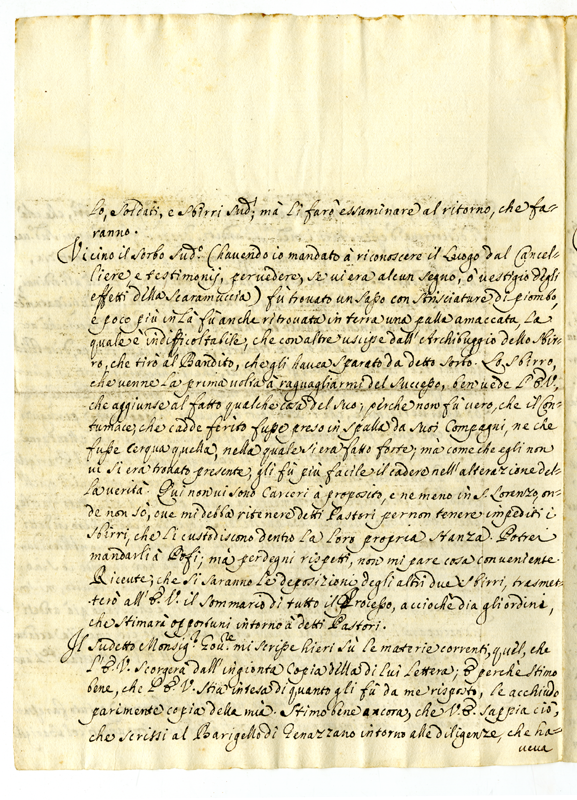 lo, e Soldati, e Sbirri Sud.ⁱ; mà li farò essaminare al ritorno, che fa-
ranno.
Vicino il Sorbo Sud.º (havendo io mandato à riconoscere il luogo dal Cancel-
liere e testimonij, per vedere, se vi era alcun segno, ò vestigio degli
effetti della Scaramuccia) fù trovato un Sasso con strisciature di piombo,
e poco più in là fù anche ritrovata in terra una palla amaccata la
quale è indifficoltabile, che con altre uscisse dall'Archibuggio dello Sbir-
ro, che tirò al Bandito, che gli havea sparato da detto Sorbo. Lo Sbirro,
che venne la prima volta à raguagliarmi del Successo, ben vede l'E.V.,
che aggiunse al fatto qualche cosa del suo; perche non fù vero, che il Con-
tumace, che cadde ferito fusse preso in spalla da suoi Compagni, ne che
fusse cerqua quella, nella quale si era fatto forte; mà come che egli non
vi si era trovato presente, gli fù più facile il cadere nell'alterazione del-
la verità. Qui non vi sono Carceri à proposito, e ne meno in S. Lorenzo on-
de non sò, ove mi debba ritenere detti Pastori per non tenere impediti i
Sbirri, che li custodiscono dentro la loro propria Stanza. Potrei
mandarli à Pofi; mà per degni rispetti, non mi pare cosa conveniente.
Riceute, che si saranno le deposizioni degli altri due Sbirri, trasmet-
terò all'E.V. il Sommario di tutto il Processo, acciochè dia gli ordini,
che stimarà opportuni intorno à detti Pastori.
Il Sudetto Monsig.ʳ Gov.ʳᵉ mi scrisse hieri sù le materie correnti, quel, che
l'E.V. scorgerà dall'ingionta Copia della di lui lettera; E perche stimo
bene, che l'E.V. stia intesa di quanto gli fù da me risposto, le acchiudo
parimente copia della mia. Stimo bene ancora, che V.E. sappia ciò,
che scrissi al Barigello di Genazzano intorno alle diligenze, che ha-
veva